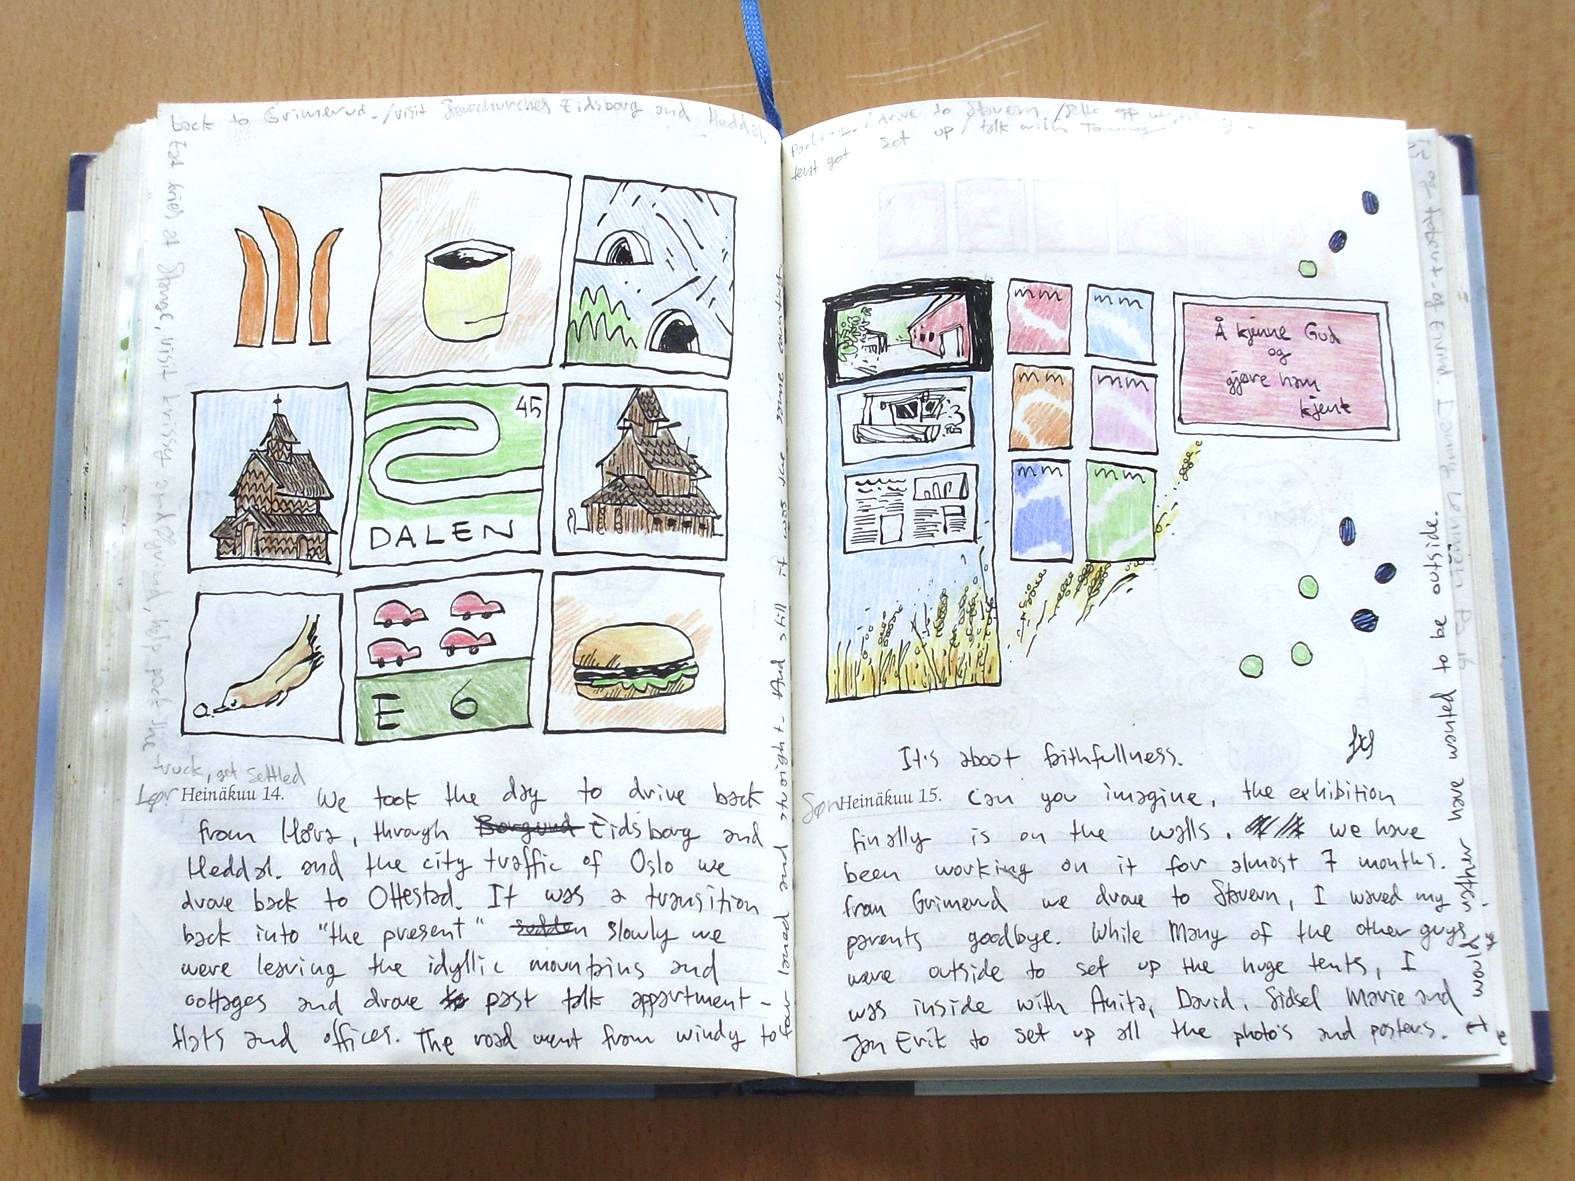 back to Grimerud. /visit Stavechurches Eidsborg and Heddal.
Eat fries at Stange, visit krissy and Øyvind, help pack the
truck, get settled
45
DALEN
E 6
Lør Heinäkuu 14. We took the day to drive back
from Hovz, through Borgund Eidsborg and
Heddal. and the city traffic of Oslo we
drove back to Ottestad. It was a transition
back into "the present" sudden slowly we
were leaving the idyllic mountains and
cottages and drove to past talk appartment-
flats and offices. The road went from windy to
four laned and straight. And still it was the same earth.
Packing. /drive to Stavern. /sette opp utstilling.
tent got set up / talk with Tommy
mm
mm
mm
mm
mm
mm
Å kjenne Gud
og
gjøre ham
kjent
It's about faithfullness.
Søn Heinäkuu 15. Can you imagine, the exhibition
finally is on the walls. we have
been working on it for almost 7 months.
from Grimerud we drove to Stavern, I waved my
parents goodbye. While Many of the other guys
were outside to set up the huge tents, I
was inside with Anita, David, Sidsel Marie and
Jan Erik to set up all the photos and posters.
I would rather have wanted to be outside.